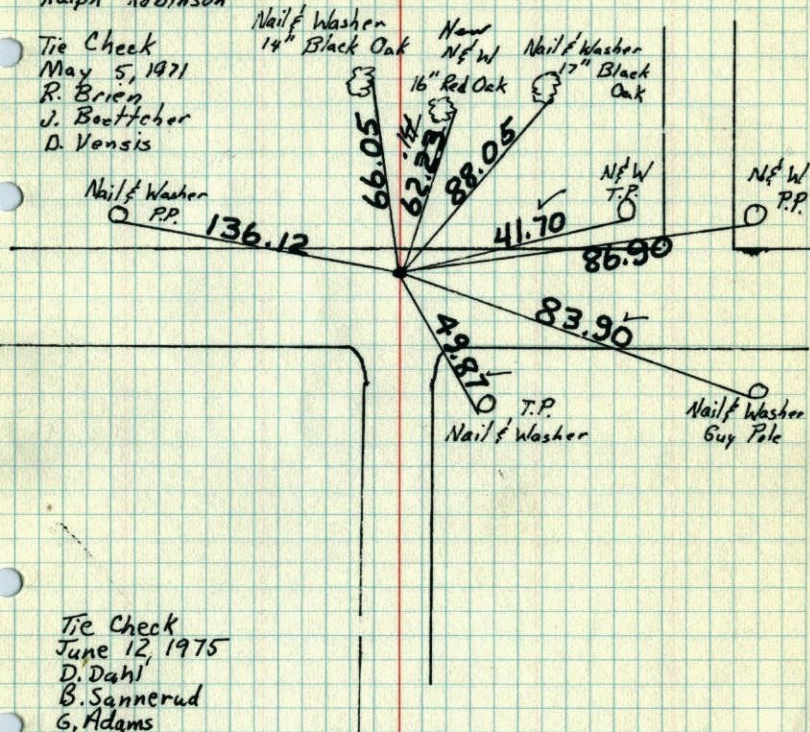 Ralph Robinson
Tie Check
May 5, 1971
R. Brien
J. Boettcher
D. Vensis
Nail & Washer
14" Black Oak
New
N & W
16" Red Oak
Nail & Washer
17" Black
Oak
66.05
62.23
88.05
Nail & Washer
P.P.
136.12
N & W
T.P.
41.70 ✓
N & W
P.P.
86.90
83.90 ✓
49.87 ✓
T.P.
Nail & Washer
Nail & Washer
Guy Pole
Tie Check
June 12, 1975
D. Dahl
B. Sannerud
G. Adams